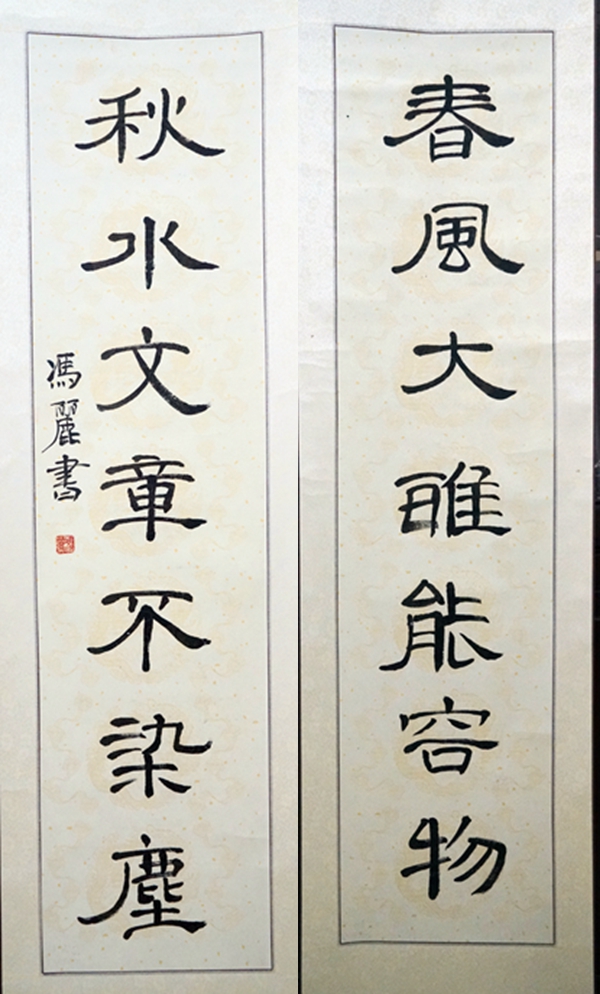 春風大雅能容物
秋水文章不染塵
馮麗書